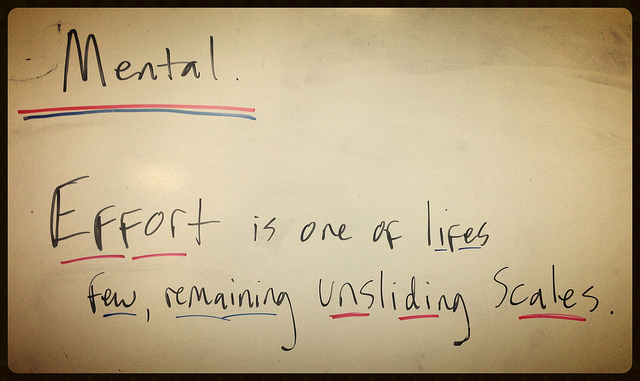 Mental.
Effort is one of lifes
few, remaining unsliding scales.